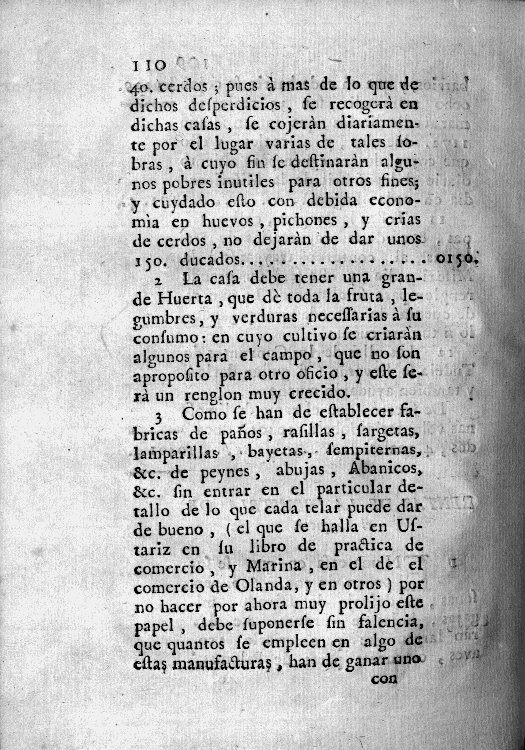 110
40. cerdos ; pues à mas de lo que de
dichos deſperdicios , ſe recogerà en
dichas caſas , ſe cojeràn diariamen-
te por el lugar varias de tales ſo-
bras , à cuyo fin ſe deſtinaràn algu-
nos pobres inutiles para otros fines;
y cuydado eſto con debida econo-
mìa en huevos , pichones , y crias
de cerdos , no dejaràn de dar unos
150. ducados.......................0150.
2 La caſa debe tener una gran-
de Huerta , que dè toda la fruta , le-
gumbres, y verduras neceſſarias à ſu
conſumo : en cuyo cultivo ſe criaràn
algunos para el campo , que no ſon
apropoſito para otro oficio , y eſte ſe-
rà un renglon muy crecido.
3 Como ſe han de eſtablecer fa-
bricas de paños , raſillas , ſargetas,
lamparillas , bayetas , ſempiternas,
&c. de peynes , abujas , Abanicos,
&c. ſin entrar en el particular de-
tallo de lo que cada telar puede dar
de bueno , ( el que ſe halla en Uſ-
tariz en ſu libro de practica de
comercio , y Marina , en el de el
comercio de Olanda, y en otros ) por
no hacer por ahora muy prolijo eſte
papel , debe ſuponerſe ſin falencia,
que quantos ſe empleen en algo de
eſtas manufacturas , han de ganar uno
con